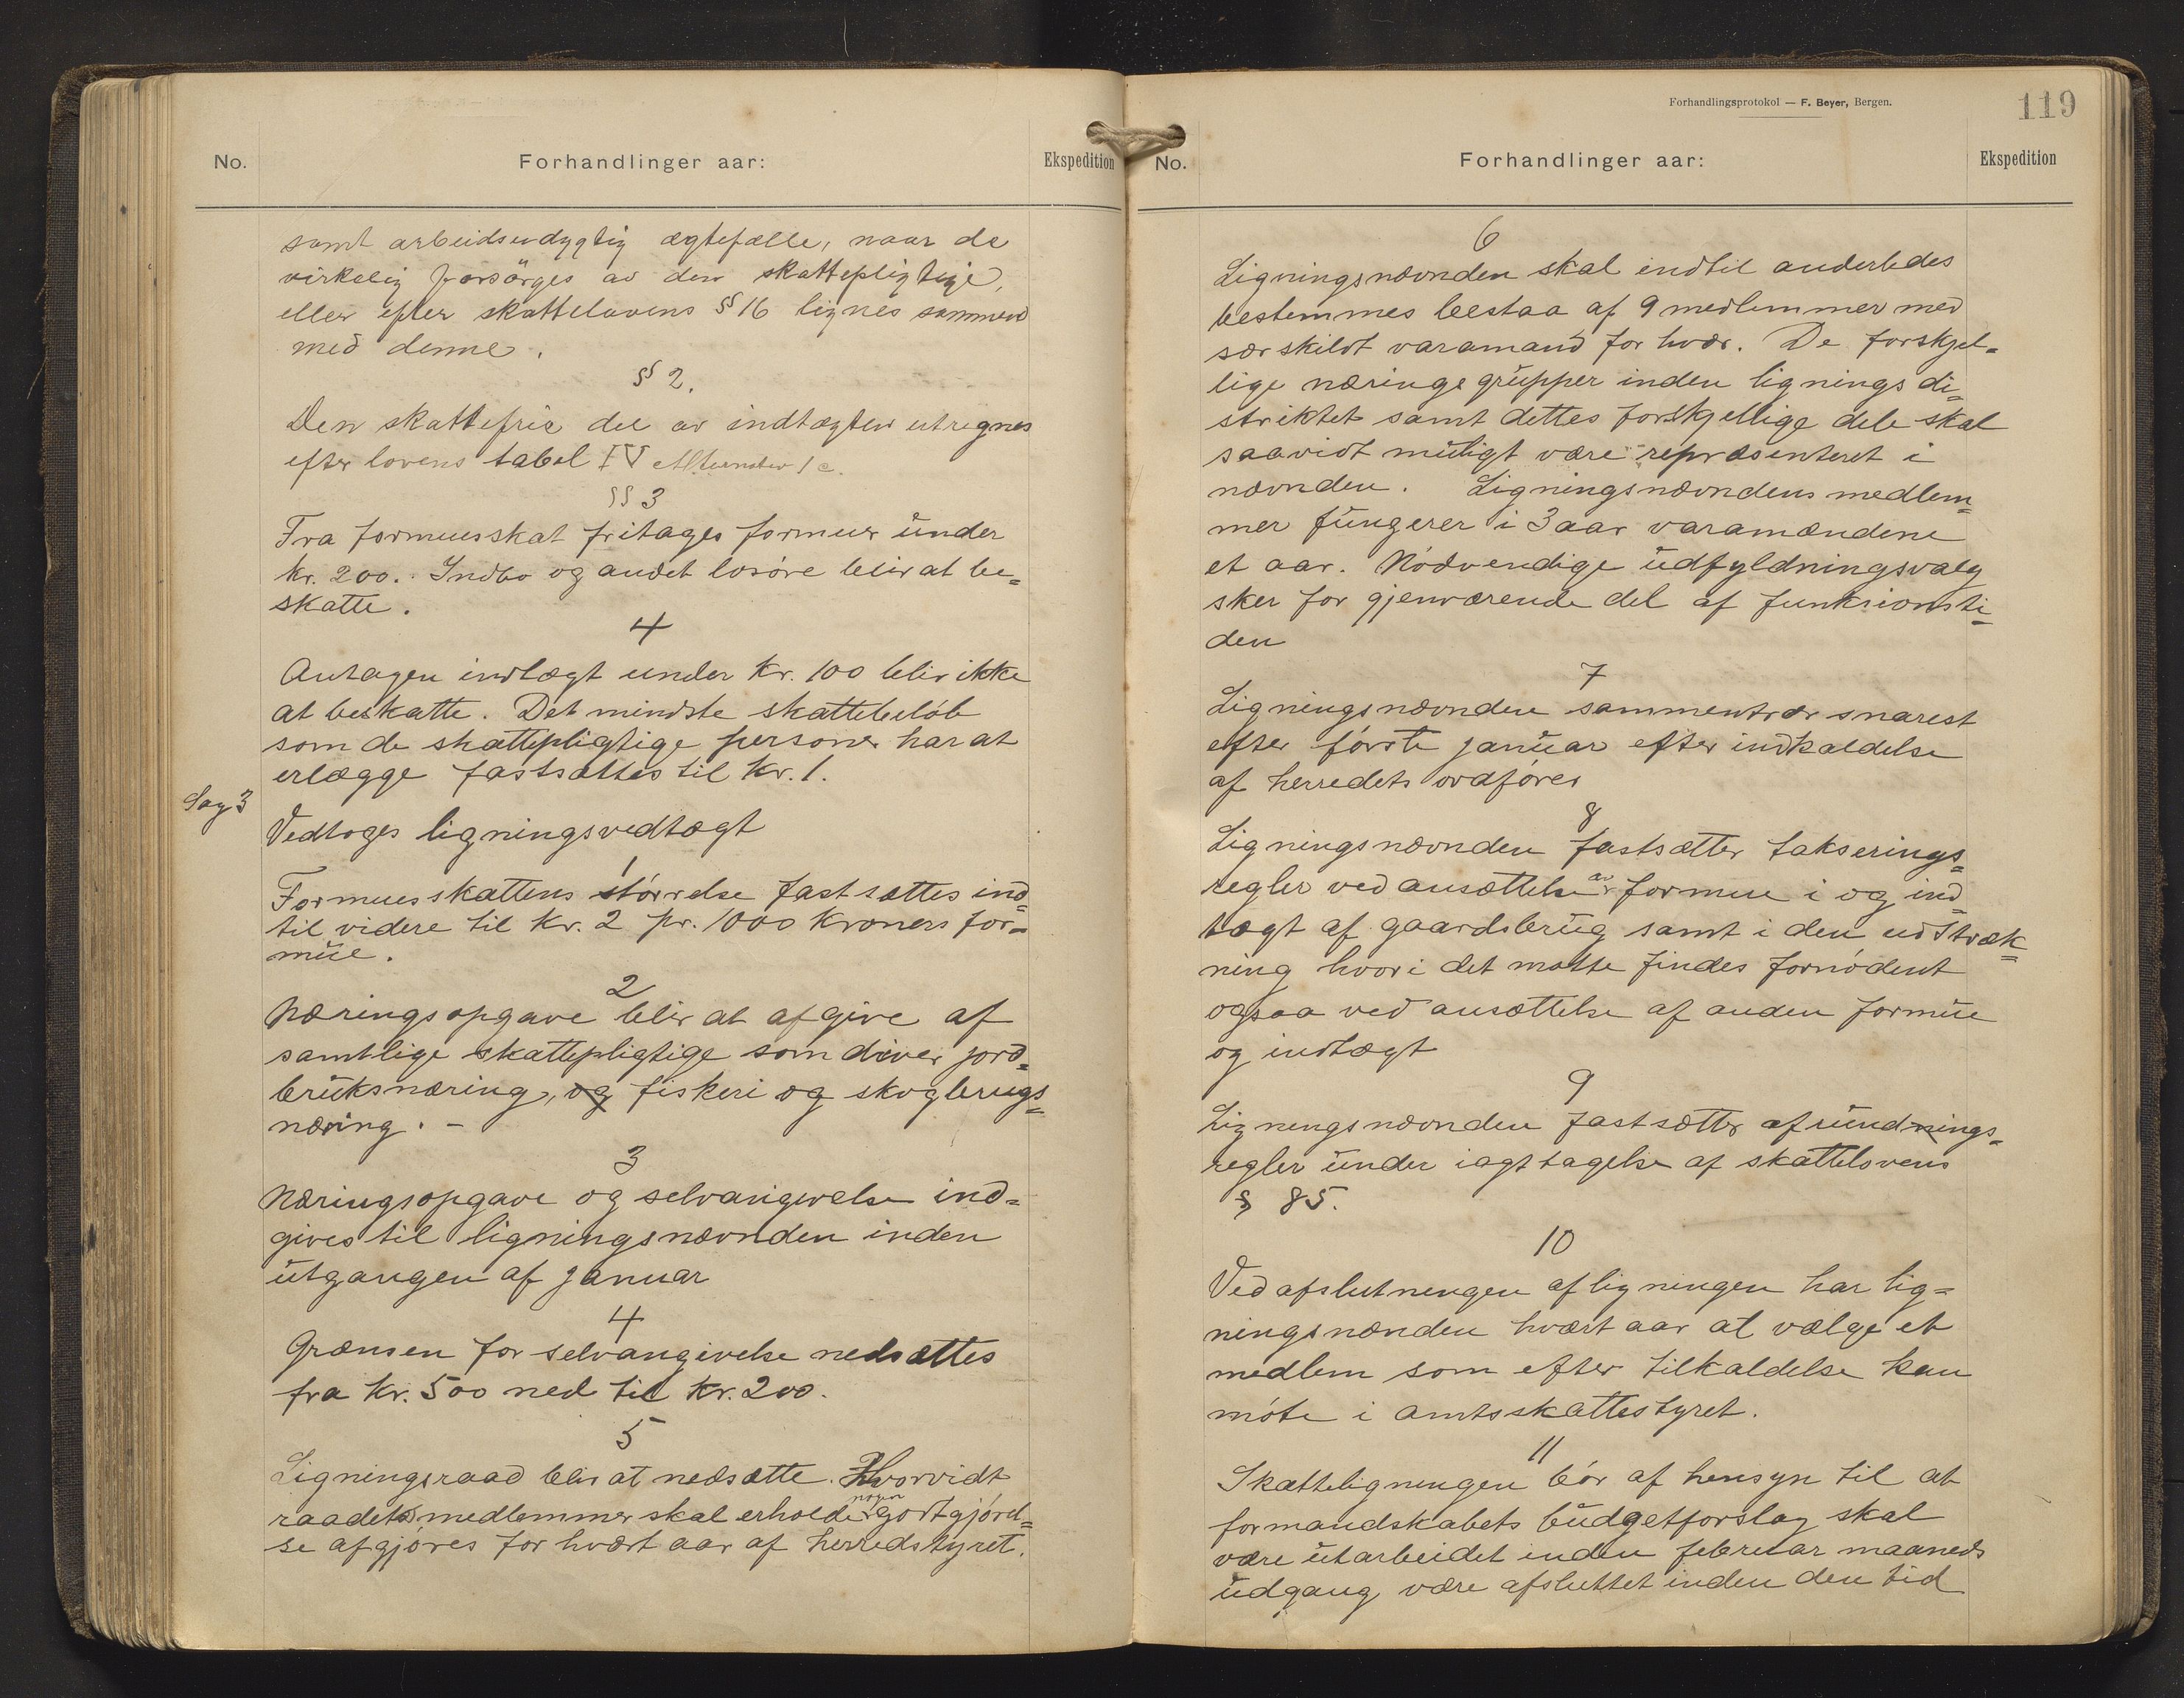 No.
Forhandlinger aar:
Ekspedition
samt arbeidsudygtig ægtefælle, naar de
virkelig forsörges av den skattepligtige,
eller efter skattelovens §§ 16 lignes sammen
med denne.
§§ 2.
Den skattefrie del av indtægten utregnes
efter lovens tabel IV Alternativ 1 c.
§§ 3
Fra formuesskat fritages formuer under
kr. 200. Indbo og andet løsøre blir at be=
skatte.
4
Antagen indtægt under kr. 100 blir ikke
at beskatte. Det mindste skattebeløb
som de skattepligtige personer har at
erlægge fastsættes til kr. 1.
Sag 3
Vedtoges ligningsvedtægt
1
Formuesskattens størrelse fastsættes ind=
til videre til kr. 2 pr. 1000 kroners for=
mue.
2
Næringsopgave blir at afgive af
samtlige skattepligtige som driver jord=
bruksnæring, og fiskeri og skogbrugs=
næring. -
3
Næringsopgave og selvangivelse ind=
gives til ligningsnævnden inden
utgangen af januar
4
Grænsen for selvangivelse nedsættes
fra kr. 500 ned til kr. 200.
5
Ligningsraad blir at nedsætte. Hvorvidt
raadets medlemmer skal erholde nogen godtgjørel=
se afgjøres for hvert aar af herredstyret.
Forhandlingsprotokol — F. Beyer, Bergen.
119
No.
Forhandlinger aar:
Ekspedition
6
Ligningsnævnden skal indtil anderledes
bestemmes bestaa af 9 medlemmer med
særskildt varamand for hver. De forskjel=
lige næringsgrupper inden ligningsdi=
striktet samt dettes forskjellige dele skal
saavidt muligt være repræsenteret i
nævnden. Ligningsnævndens medlem=
mer fungerer i 3 aar varamændene
et aar. Nødvendige udfyldningsvalg
sker for gjenværende del af funksionsti=
den
7
Ligningsnævnden sammentrær snarest
efter første januar efter indkaldelse
af herredets ordfører
8
Ligningsnævnden fastsætter takserings=
regler ved ansættelse av formue i og ind=
tægt af gaardsbrug samt i den udstræk=
ning hvori det maatte findes fornødent
ogsaa ved ansættelse af anden formue
og indtægt
9
Ligningsnævnden fastsætter afrundnings=
regler under iagttagelse af skattelovens
§ 85.
10
Ved afslutningen af ligningen har lig=
ningsnænden hvert aar at vælge et
medlem som efter tilkaldelse kan
møte i amtsskattestyret.
11
Skatteligningen bør af hensyn til at
formandskabets budgetforslag skal
være utarbeidet inden februar maaneds
udgang være afsluttet inden den tid